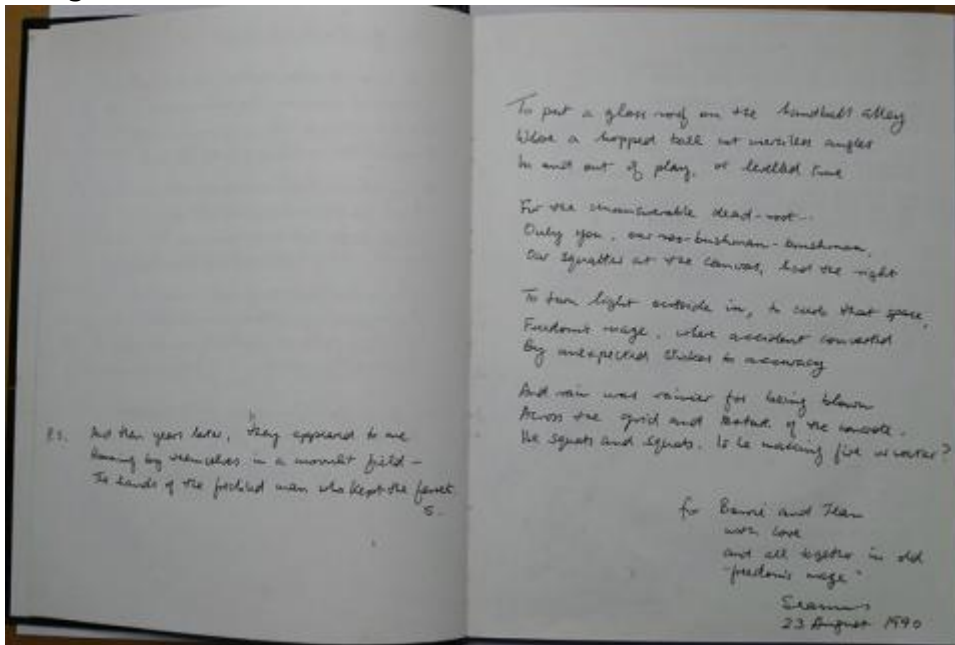 P.S. And then years later, they appeared to me
by themselves in a moonlit field –
The hands of the freckled man who kept the ferret.
S.
To put a glass roof on the handball alley
Where a hopped ball cut merciless angles
In and out of play, or levelled true
For the unanswerable dead-root...
Only you, our bushman-brushman,
Our squatter at the canvas, had the right
To turn light outside in, to curb that space,
Freedom's wage, where accident converted
By unexpected strokes to accuracy
And rain was rainier for being blown
Across the grid and texture of the concrete.
He squats and squats. Is he making fire or water?
for Barrie and Jean
with love
and all together in old
"freedom's wage"
Seamus
23 August 1990